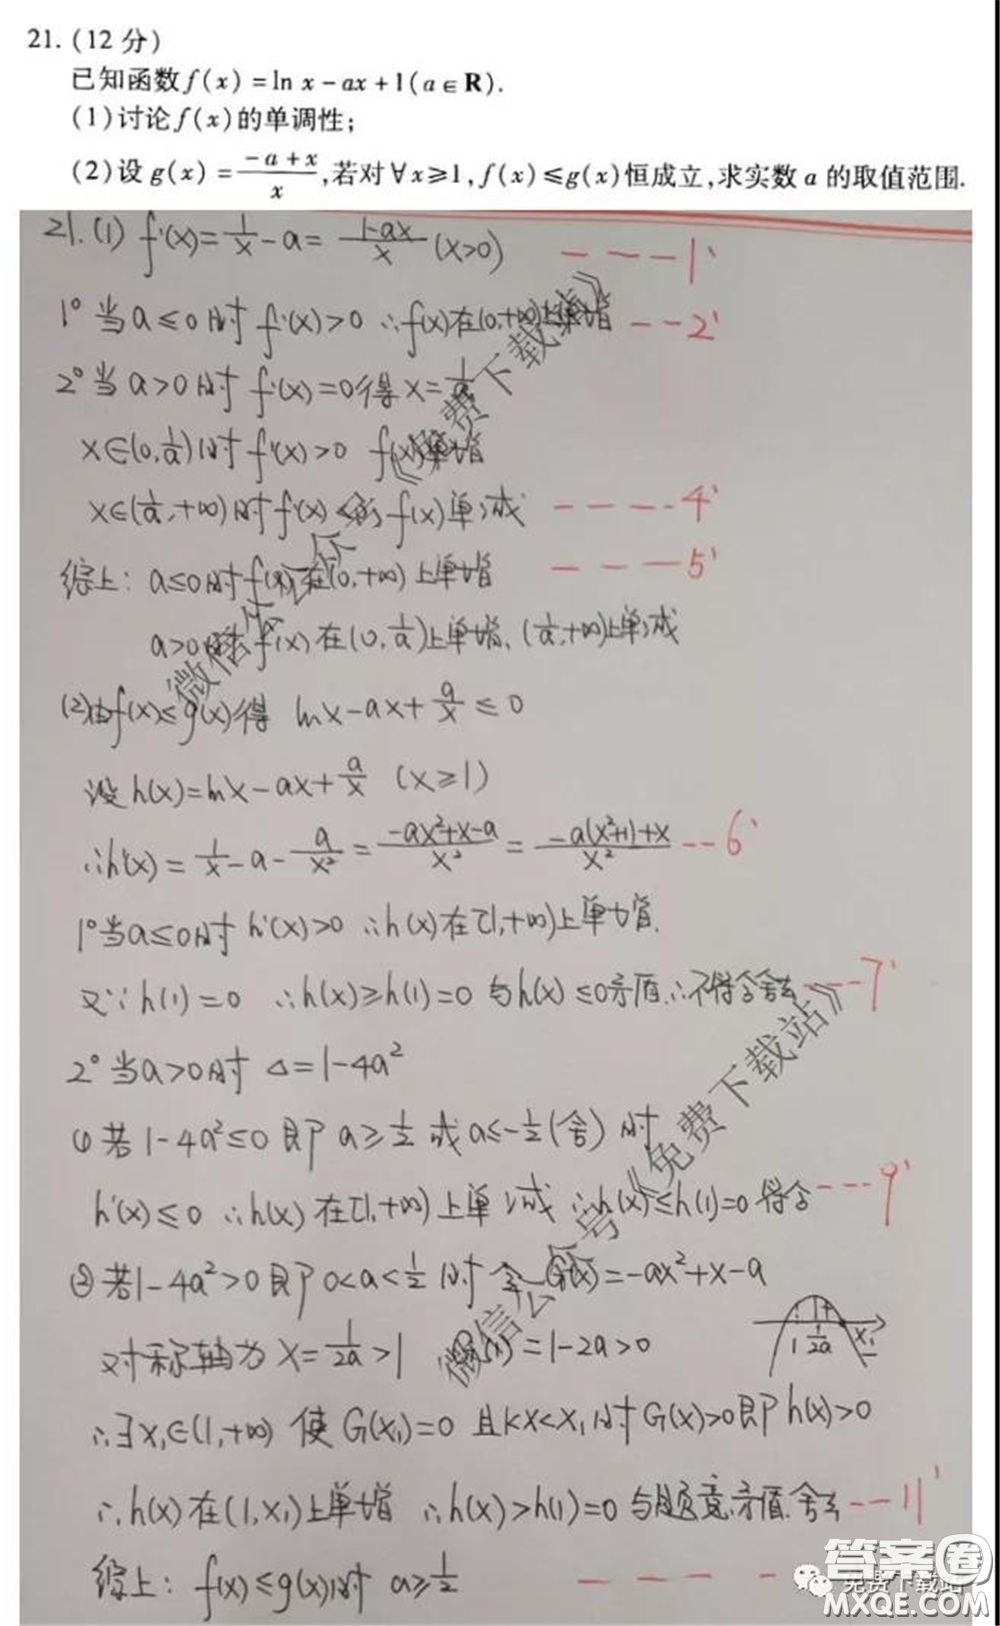 21. (12 分)
已知函数 f(x) = ln x - ax + 1 (a ∈ R).
(1) 讨论 f(x) 的单调性;
(2) 设 g(x) = (-a + x)/x, 若对 ∀x ≥ 1, f(x) ≤ g(x) 恒成立, 求实数 a 的取值范围.
21. (1) f'(x) = 1/x - a = (1-ax)/x (x>0) ---1'
1° 当 a ≤ 0 时 f'(x) > 0 ∴ f(x) 在 (0,+∞) 上单增 ---2'
2° 当 a > 0 时 f'(x) = 0 得 x = 1/a
x∈(0, 1/a) 时 f'(x) > 0 f(x) 单增
x∈(1/a, +∞) 时 f'(x) < 0 f(x) 单减 ----4'
综上: a ≤ 0 时 f(x) 在 (0,+∞) 上单增 ---5'
a > 0 时 f(x) 在 (0, 1/a) 上单增, (1/a, +∞) 上单减
(2) 由 f(x) ≤ g(x) 得 lnx - ax + a/x ≤ 0
设 h(x) = lnx - ax + a/x (x ≥ 1)
∴ h'(x) = 1/x - a - a/x² = (-ax²+x-a)/x² = (-a(x²+1)+x)/x² --6'
1° 当 a ≤ 0 时 h'(x) > 0 ∴ h(x) 在 [1,+∞) 上单增.
又∵ h(1) = 0 ∴ h(x) ≥ h(1) = 0 与 h(x) ≤ 0 矛盾 ∴ 不符合舍去 ---7'
2° 当 a > 0 时 Δ = 1-4a²
① 若 1-4a² ≤ 0 即 a ≥ 1/2 或 a ≤ -1/2 (舍) 时
h'(x) ≤ 0 ∴ h(x) 在 [1,+∞) 上单减 ∴ h(x) ≤ h(1) = 0 符合 ---9'
② 若 1-4a² > 0 即 0 < a < 1/2 时 令 G(x) = -ax²+x-a
对称轴为 x = 1/2a > 1 G(1) = 1-2a > 0
1 1/2a x₁
∴ ∃x₁∈(1,+∞) 使 G(x₁) = 0 且 1<x<x₁ 时 G(x) > 0 即 h'(x) > 0
∴ h(x) 在 (1, x₁) 上单增 ∴ h(x) > h(1) = 0 与题意矛盾 舍去 --11'
综上: f(x) ≤ g(x) 时 a ≥ 1/2
微信公众号《免费下载站》
微信公众号《免费下载站》
免费下载站
答案圈
MXQE.COM